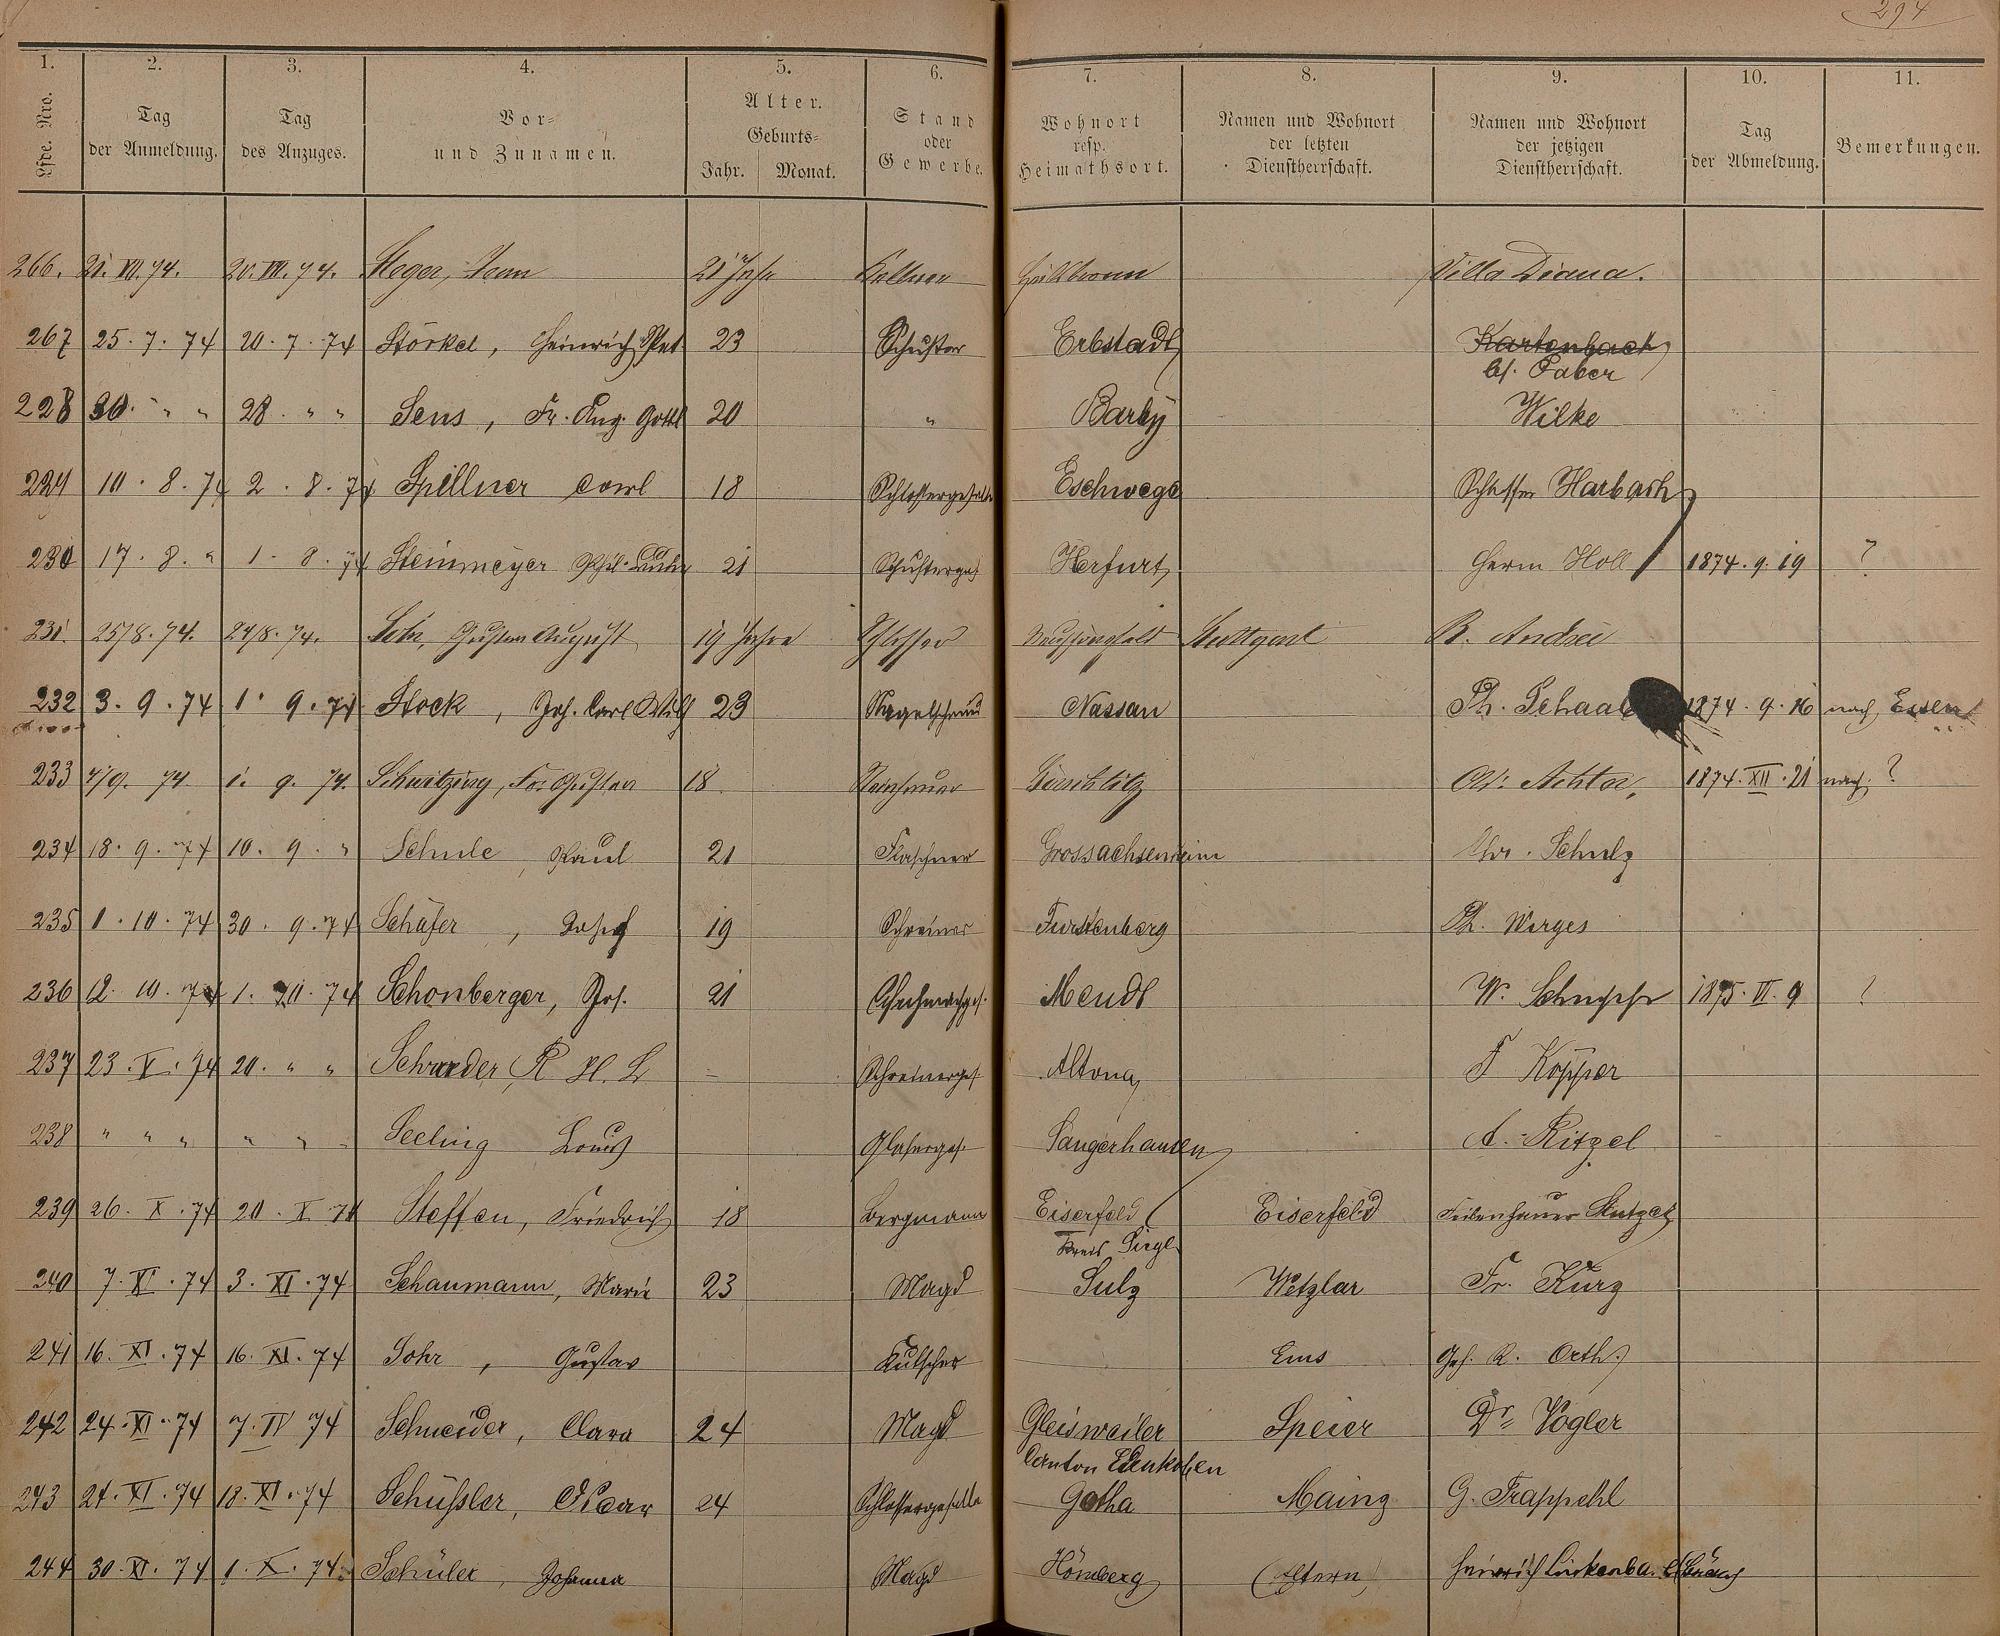 294
1. 2. 3. 4. 5. 6. 7. 8. 9. 10. 11.
Lfde. Nro. Tag der Anmeldung. Tag des Anzuges. Vor- und Zunamen. Alter. Geburts- Jahr. Monat. Stand oder Gewerbe. Wohnort resp. Heimathsort. Namen und Wohnort der letzten Dienstherrschaft. Namen und Wohnort der jetzigen Dienstherrschaft. Tag der Abmeldung. Bemerkungen.
266. 21. VII. 74. 20. VII. 74. Steger, Jean 21 Jahr Kellner Heilbronn Villa Diana.
267 25. 7. 74 20. 7. 74 Störkel, Heinrich Pet 23 Schuster Erbstadt Kartenbach
bei Faber
228 30. " " 28. " " Sens, Fr. Aug. Gottl 20 " Barby Wilke
229 10. 8. 74 2. 8. 74 Spillner Carl 18 Schlossergeselle Eschwege Schlosser Harbach
230 17. 8. " 1. 8. 74 Steinmeyer Phil. 21 Schusterges Herfurt Herm Holl 1874. 9. 19 ?
231. 25/8. 74. 24/8. 74. Sohr, Gustav August 19 Jahre Schlosser Stuttgart B. André
232 3. 9. 74 1. 9. 74 Stock, Joh. Carl Wilh 23 Nagelschmied Nassau Ph. Schaab 1874. 9. 16 nach Essen
233 4/9. 74 1. 9. 74. Fr. Gustav 18. Chr. Achtor, 1874. XII. 21 nach ?
234 18. 9. 74 10. 9. " Schule, Paul 21 Flaschner Grossachsenheim Chr. Schulz
235 1. 10. 74 30. 9. 74 Schäfer, Josef 19 Schreiner Furstenberg Ph. Werges
236 12. 10. 74 1. 10. 74 Schonberger, Jos. 21 Schuhmachges. Mendt W. 1875. VI. 9 ?
237 23. X. 74 20. " " Schrœder R H. L - Schreinerges. Altona F Köpper
238 " " " " " Seeling Louis Glaserges. Sangerhausen A. Ritzel
239 26. X. 74 20. X 74 Steffen, Friedrich 18 Bergmann Eiserfeld Eiserfeld Feilenhauer Stutzel
Kreis Siegl
240 7. XI. 74 3. XI. 74 Schaumann, Marie 23 Magd Sulz Wetzlar Fr. Kurz
241 16. XI. 74 16. XI. 74 Sohr, Gustav Kutscher Ems Geh. R. Orth
242 24. XI. 74 7. IV 74 Schneider, Clara 24 Magd Gleisweiler Speier Dr. Vogler
Canton Edenkoben
243 24. XI. 74 18. XI. 74 Schüssler, Oscar 24 Schlossergeselle Gotha Mainz G. Trappehl
244 30. XI. 74 1. X. 74. Schüler, Johanna Magd Hömberg (Eltern) Heinrich